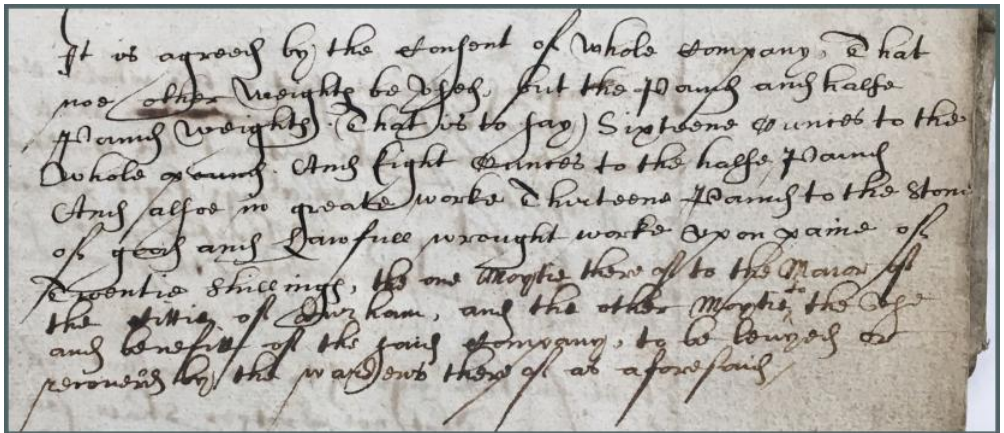 It is agreed by the Consent of Whole Company, That
noe other Weights be Used, but the Pound and halfe
Pound Weights (That is to say) Sixteene Ounces to the
Whole pound And Eight Ounces to the halfe Pound
And alsoe in greate worke Thirteene Pound to the Stone
of good and Lawfull wrought worke Upon paine of
Twentie Shillings, the one Moytie there of to the Maior of
the Cittie of Durham, and the other Moytie to the Use
and benefitt of the said Company, to be levyed or
recovered by the wardens there of as aforesaid